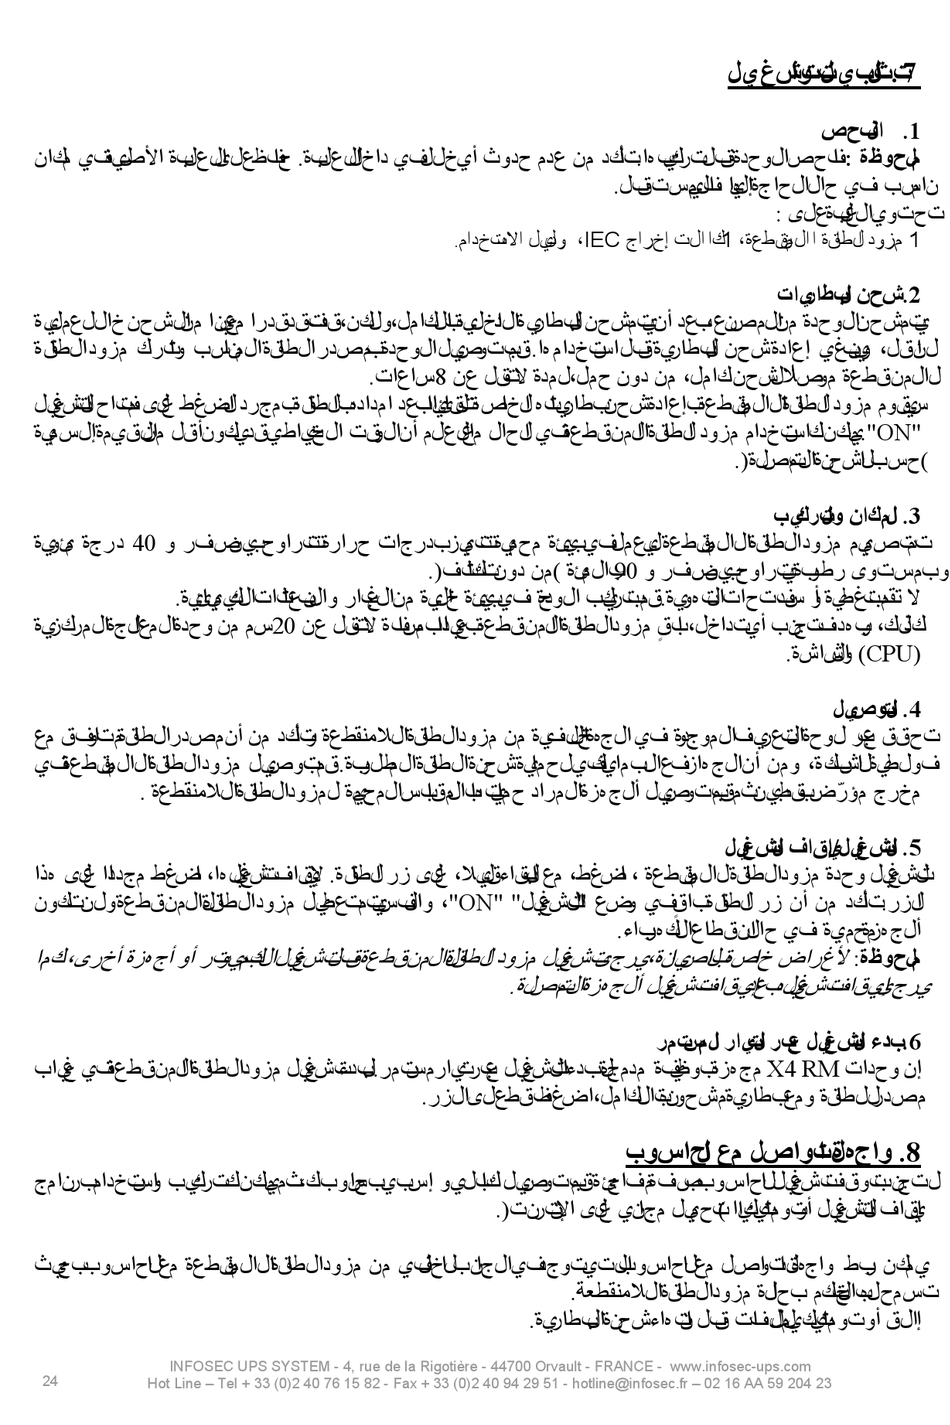 7. التثبيت والتشغيل
1. الفحص
ملحوظة: افحص الوحدة قبل تركيبها. تأكد من عدم حدوث أي خلل في داخل العلبة. حافظ على العلبة الأصلية في مكان
مناسب في حال الحاجة إليها في المستقبل.
تحتوي العلبة على :
1 مزود الطاقة اللامنقطعة، 1 إخراج IEC، دليل الاستخدام.
2. شحن البطاريات
يتم شحن الوحدة من المصنع بعد أن يتم شحن البطارية الداخلية بالكامل، ولكن، قد تفقد قدرا معينا من الشحن خلال عملية
النقل، وينبغي إعادة شحن البطارية قبل استخدامها. قم بتوصيل الوحدة بمصدر الطاقة المناسب واترك مزود الطاقة
اللامنقطعة موصلا لشحن كامل، من دون حمل، لمدة لا تقل عن 8 ساعات.
سيقوم مزود الطاقة اللامنقطعة بإعادة شحن بطاريته الخاصة تلقائيا بعد امداده بالطاقة بمجرد الضغط على مفتاح التشغيل
"ON". يمكنك استخدام مزود الطاقة اللامنقطعة في الحال مع العلم أن الوقت الاحتياطي قد يكون أقل من القيمة الإسمية
)حسب الشحنة المتصلة(.
3. المكان والتركيب
تم تصميم مزود الطاقة اللامنقطعة ليعمل في بيئة محمية تتميز بدرجات حرارة تتراوح بين صفر و 40 درجة مئوية
وبمستوى رطوبة يتراوح بين صفر و 90 بالمئة )من دون تكثف(.
لا تقم بتغطية أو سد فتحات التهوية. قم بتركيب الوحدة في بيئة خالية من الغبار والانبعاثات الكيميائية.
كذلك، وبهدف تجنب أي تداخل، ابق مزود الطاقة اللامنقطعة بعيدا بمسافة لا تقل عن 20سم من وحدة المعالجة المركزية
(CPU) والشاشة.
4. التوصيل
تحقق عبر لوحة التعريف الموجودة في الجهة الخلفية من مزود الطاقة اللامنقطعة وتأكد من أن مصدر الطاقة متوافق مع
فولطية الشبكة، ومن أن الجهاز فعال بما يكفي لحماية شحنة الطاقة المطلوبة. قم بتوصيل مزود الطاقة اللامنقطعة في
مخرج مؤرض بقطبين ثم قم بتوصيل الأجهزة المراد حمايتها بالمقابس المحمية لمزود الطاقة اللامنقطعة .
5. التشغيل/إيقاف التشغيل
لتشغيل وحدة مزود الطاقة اللامنقطعة ، اضغط، مع الإبقاء قليلا، على زر الطاقة. لإيقاف تشغيلها، اضغط مجددا على هذا
الزر. تأكد من أن زر الطاقة باقٍ في وضع التشغيل" "ON"، وإلا فسيتم تعطيل مزود الطاقة اللامنقطعة ولن تكون
الأجهزة محمية في حال انقطاع الكهرباء.
ملحوظة: لأغراض خاصة بالصيانة، يرجى تشغيل مزود الطاقة اللامنقطعة قبل تشغيل الكمبيوتر أو أجهزة أخرى، كما
يرجى إيقاف تشغيله بعد إيقاف تشغيل الأجهزة المتصلة.
6. بدء التشغيل عبر التيار المستمر
إن وحدات X4 RM مجهزة بوظيفة مدمجة لبدء التشغيل عبر تيار مستمر. لبدء تشغيل مزود الطاقة اللامنقطعة في غياب
مصدر للطاقة ومع بطارية مشحونة بالكامل، اضغط فقط على الزر.
8. واجهة التواصل مع الحاسوب
لتجنب توقف تشغيل الحاسوب بصفة مفاجئة قم بتوصيل كابل يو إسبي بحاسوبك، ثم يمكنك تركيب واستخدام برنامج
إيقاف التشغيل أوتوماتيكيا )تحميل مجاني على الإنترنت(.
يمكن ربط واجهة التواصل مع الحاسوب التي توجد في الجانب الخلفي من مزود الطاقة اللامنقطعة مع الحاسوب بحيث
تسمح له بالتحكم بحالة مزود الطاقة اللامنقطعة.
إغلاق أوتوماتيكي للملفات قبل انتهاء شحنة البطارية.
INFOSEC UPS SYSTEM - 4, rue de la Rigotière - 44700 Orvault - FRANCE - www.infosec-ups.com
24 Hot Line – Tel + 33 (0)2 40 76 15 82 - Fax + 33 (0)2 40 94 29 51 - hotline@infosec.fr – 02 16 AA 59 204 23